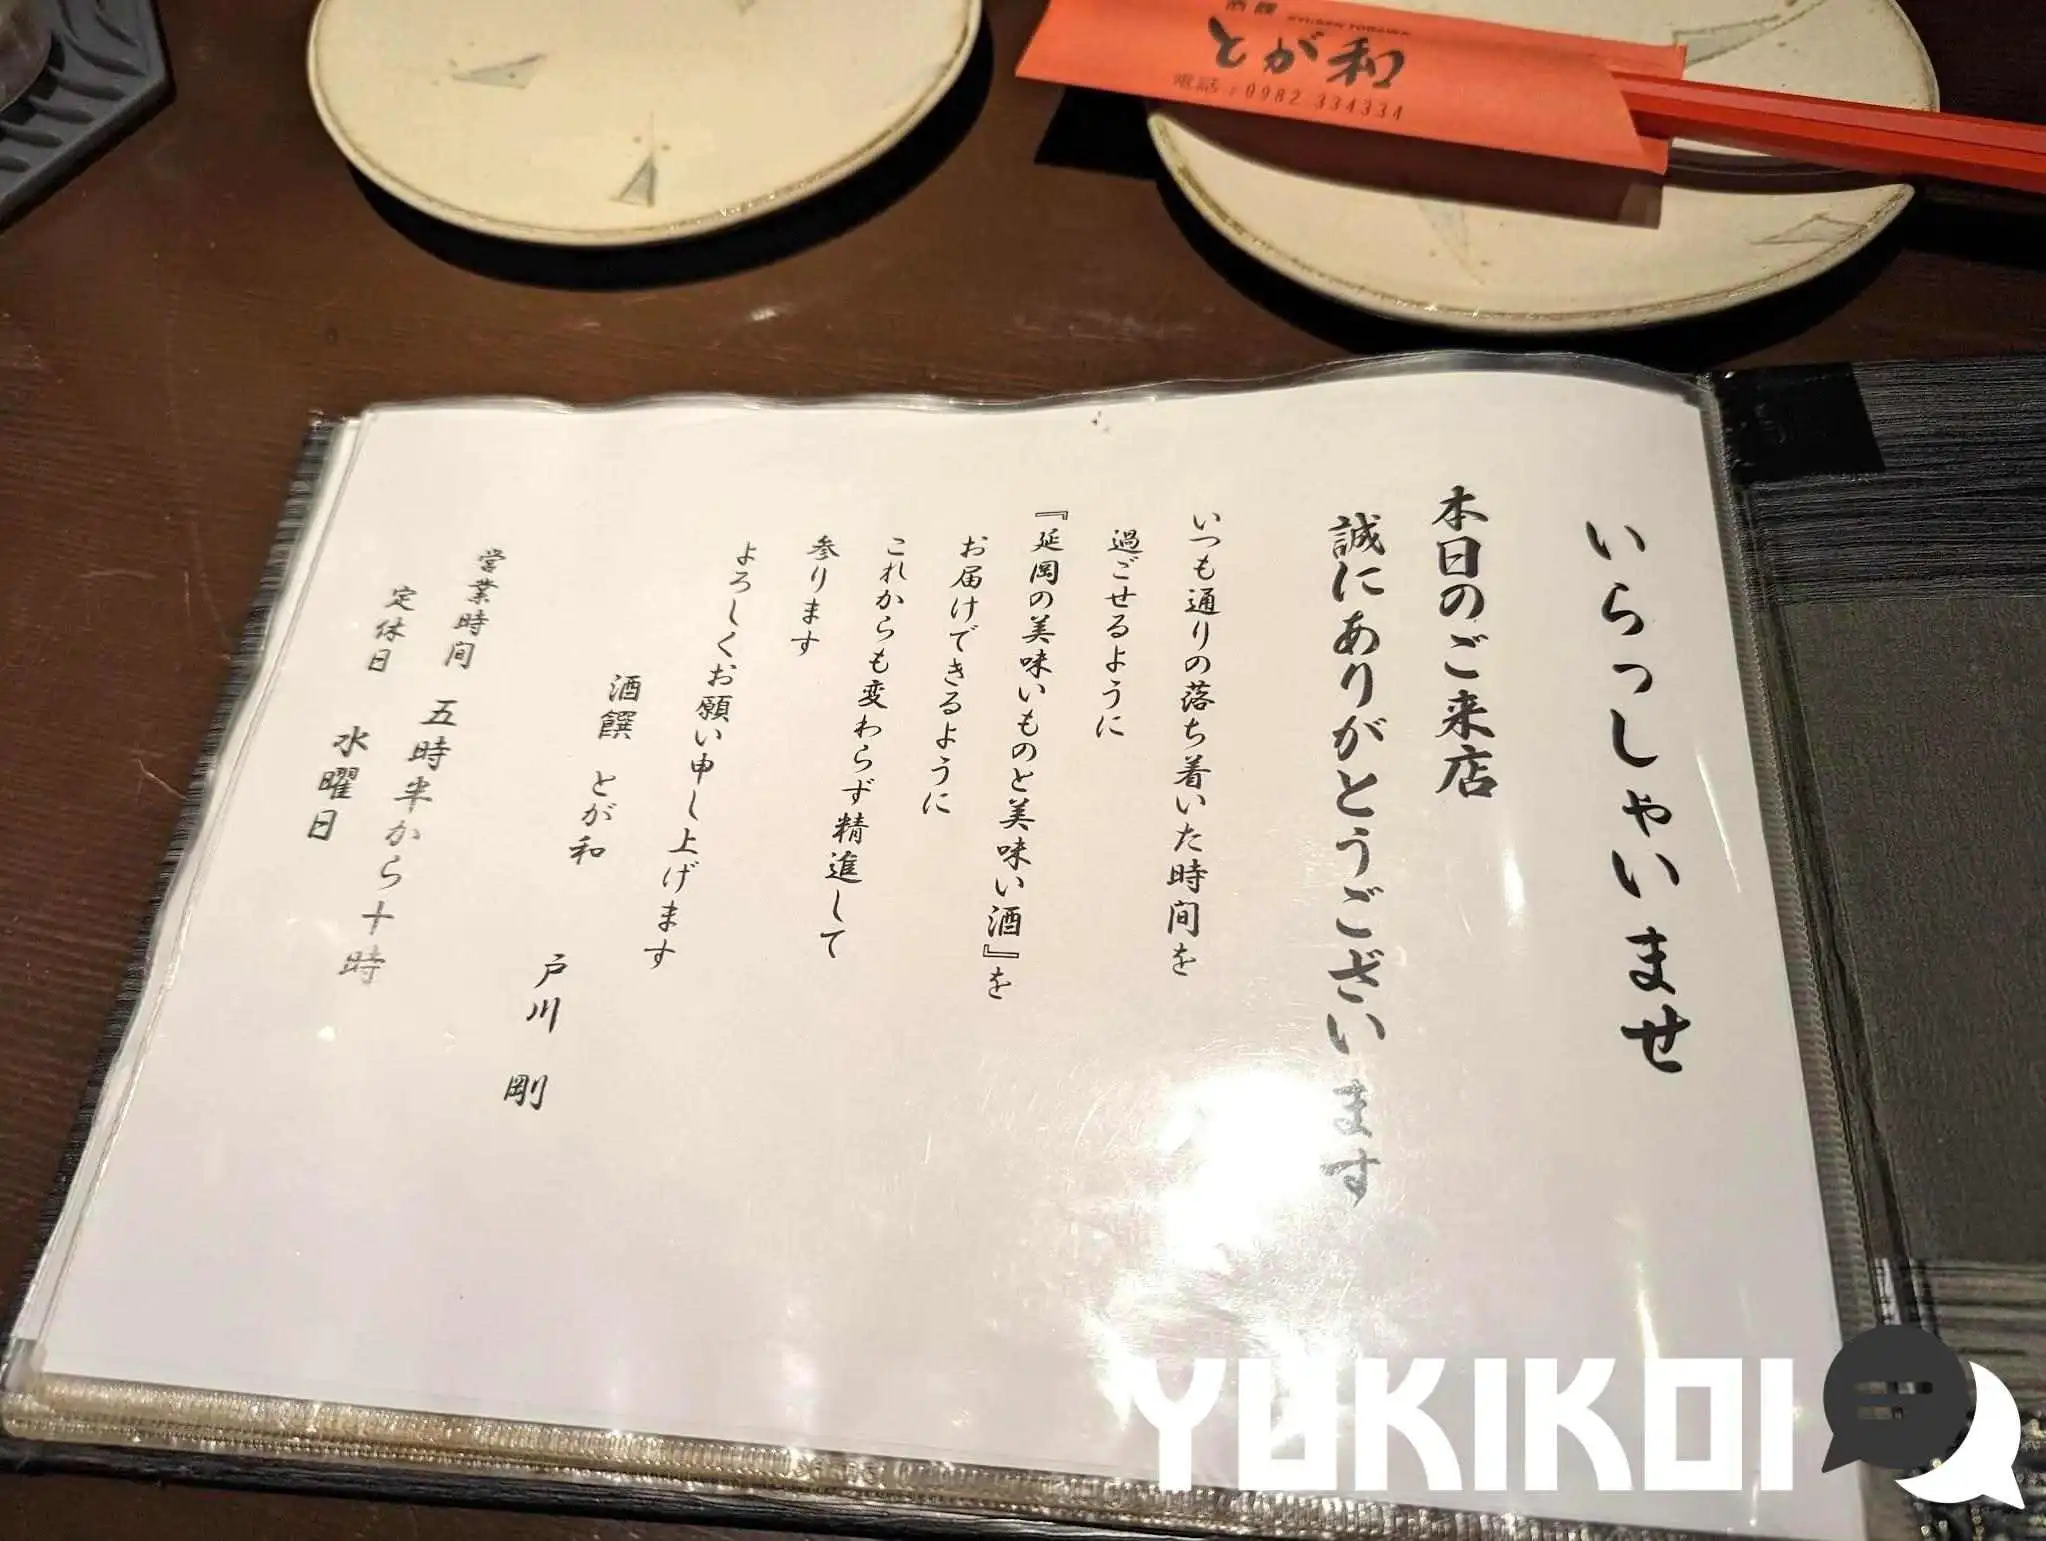 酒饌 RYUSEN TOGAWA
とが和
電話：0982 334334
いらっしゃいませ
本日のご来店
誠にありがとうございます
いつも通りの落ち着いた時間を
過ごせるように
『延岡の美味いものと美味い酒』を
お届けできるように
これからも変わらず精進して
参ります
よろしくお願い申し上げます
酒饌 とが和
戸川 剛
営業時間 五時半から十時
定休日 水曜日
YUKIKOI